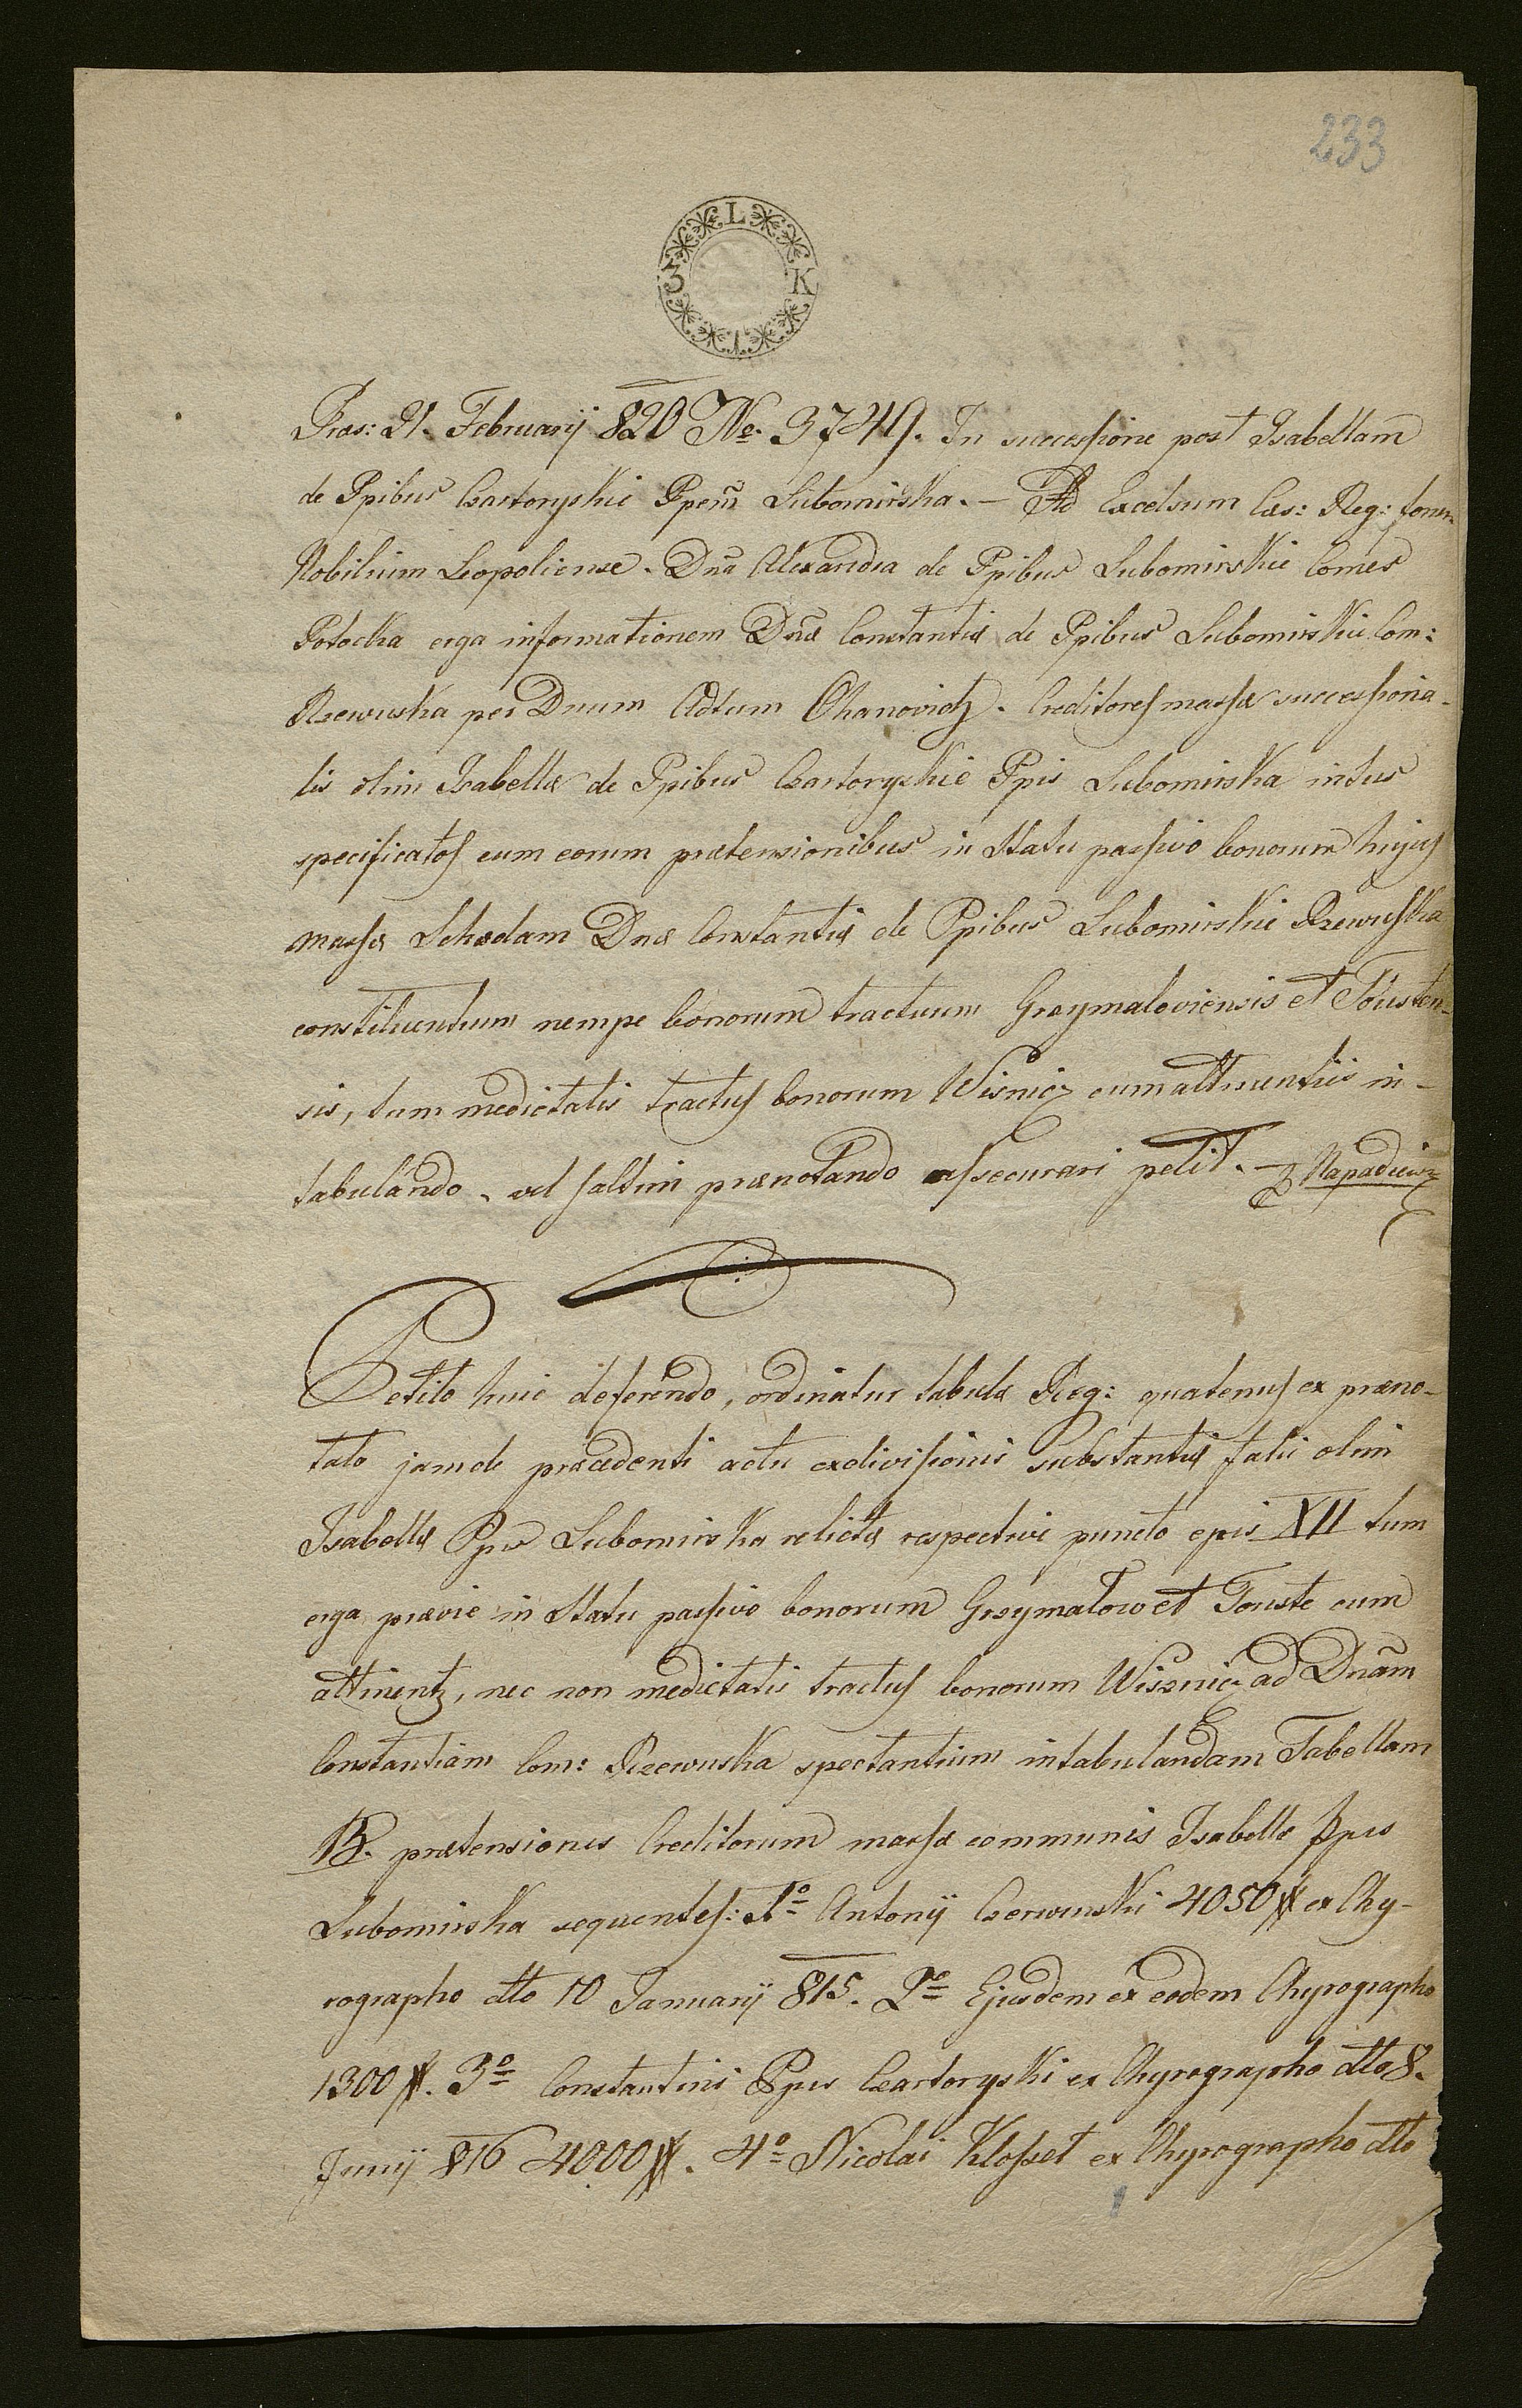 233
L
3 K
Præs: 21. Februarij 820 No. 3749. In successione post Isabellam
de Ppibus Czartoryskie Ppem Lubomirska. — Ad Excelsum Cæs: Reg: forum
Nobilium Leopoliense. Dna Alexandra de Ppibus Lubomirskie Comes
Potocka erga informationem Dnæ Constantiæ de Ppibus Lubomirskie Com:
Rzewuska per Dnum Adtum Ohanovich. Creditores massæ successiona-
lis olim Isabellæ de Ppibus Czartoryskie Ppis Lubomirska intus
specificatos cum eorum prætensionibus in Statu passivo bonorum hujus
massæ Schedam Dnæ Constantiæ de Ppibus Lubomirskie Rzewuska
constituentium nempe bonorum tractuum Grzymaloviensis et Tousten-
sis, tum medietatis tractus bonorum Wisnicz cum attinentiis in-
tabulando, vel saltim prænotando assecurari petit. — Napadiewicz
Petito huic deferendo, ordinatur tabulæ Reg: quatenus ex præno-
tato jam de præcedenti actu exdivisionis substantiæ fatæ olim
Isabellæ Ppis Lubomirska relictæ respective puncto ejus XII tum
erga prævie in Statu passivo bonorum Grzymalow et Touste cum
attinentz, nec non medietatis tractus bonorum Wisznicz ad Dnam
Constantiam Com: Rzewuska spectantium intabulandam Tabellam
B. prætensiones Creditorum massæ communis Isabellæ Ppis
Lubomirska sequentes: 1o Antonij Czerwinski 4050 # ex Chy-
rographo dto 10 Januarij 815. 2o Ejusdem ex eodem Chyrographo
1300 #. 3o Constantini Ppis Czartoryski ex Chyrographo dto 8.
Junij 816 4000 #. 4o Nicolai Klosset ex Chyrographo dto